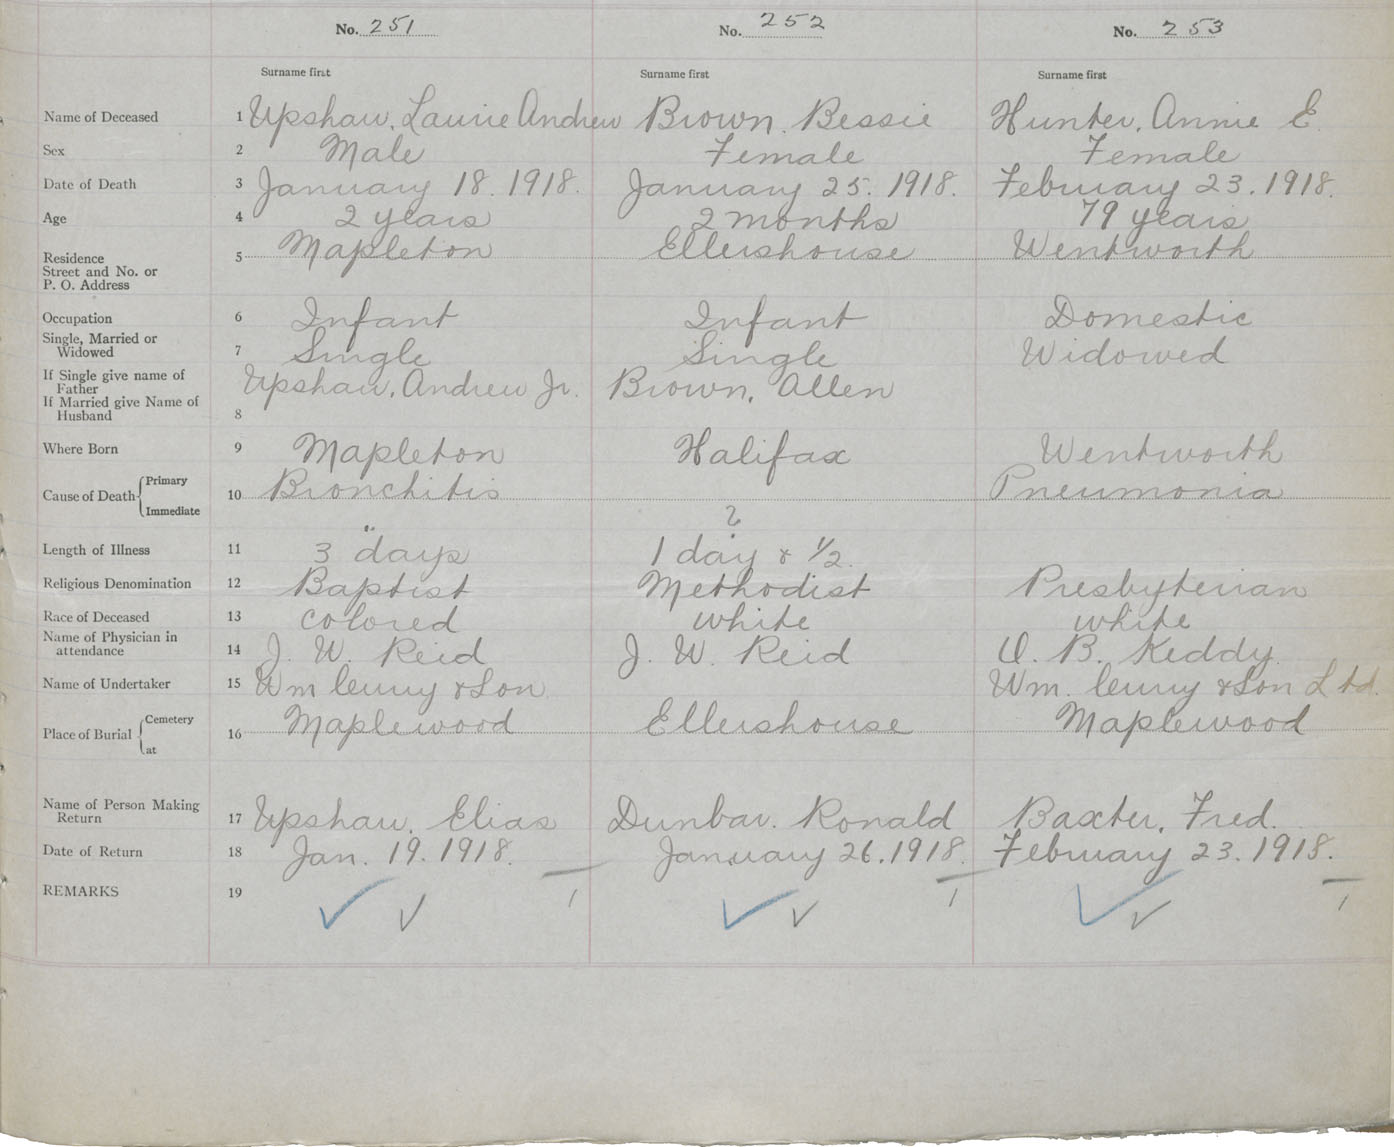 No. 251 No. 252 No. 253
Surname first Surname first Surname first
Name of Deceased 1 Upshaw, Laurie Andrew Brown, Bessie Hunter, Annie E.
Sex 2 Male Female Female
Date of Death 3 January 18. 1918. January 25. 1918. February 23. 1918.
Age 4 2 years 2 months 79 years
Residence 5 Mapleton Ellershouse Wentworth
Street and No. or
P. O. Address
Occupation 6 Infant Infant Domestic
Single, Married or
Widowed 7 Single Single Widowed
If Single give name of
Father Upshaw, Andrew Jr. Brown, Allen
If Married give Name of
Husband 8
Where Born 9 Mapleton Halifax Wentworth
Cause of Death Primary
10 Bronchitis Pneumonia
Immediate ?
Length of Illness 11 3 days 1 day & 1/2.
Religious Denomination 12 Baptist Methodist Presbyterian
Race of Deceased 13 colored white white
Name of Physician in
attendance 14 J. W. Reid J. W. Reid O. B. Keddy
Name of Undertaker 15 Wm Curry & Son Wm. Curry & Son Ltd.
Place of Burial Cemetery
16 Maplewood Ellershouse Maplewood
at
Name of Person Making
Return 17 Upshaw, Elias Dunbar. Ronald Baxter, Fred.
Date of Return 18 Jan. 19. 1918. January 26. 1918. February 23. 1918.
REMARKS 19 1 1 1